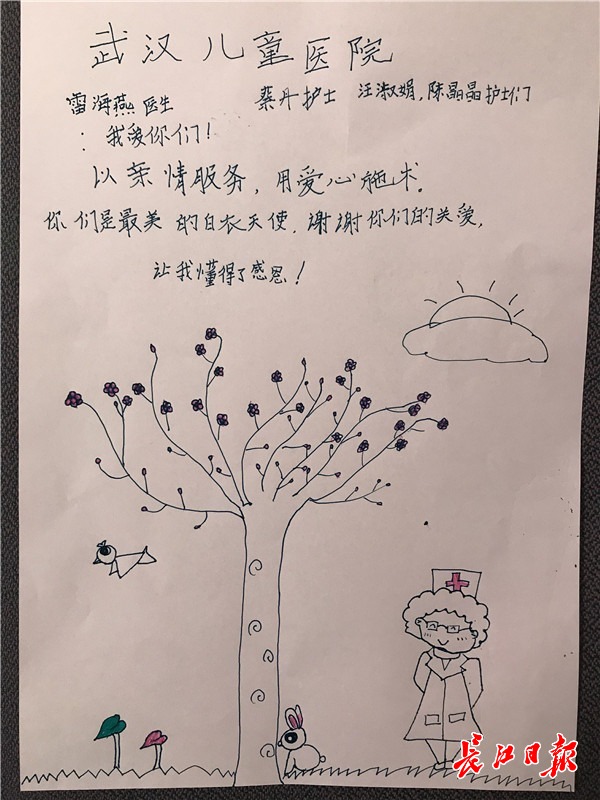 武汉儿童医院
雷海燕医生 蔡丹护士 汪淑娟,陈晶晶护士们
:我爱你们!
以亲情服务,用爱心施术.
你们是最美的白衣天使.谢谢你们的关爱,
让我懂得了感恩!
长江日报